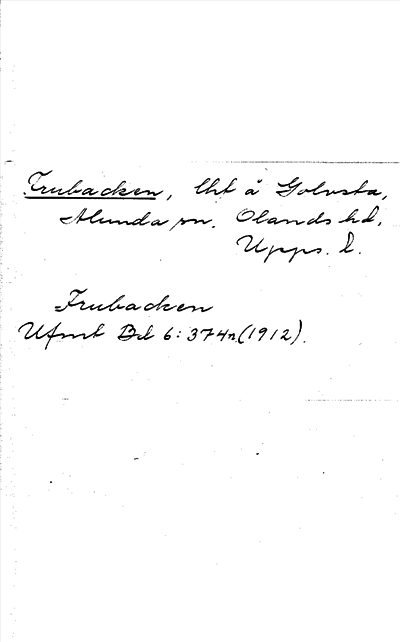 Frubacken, lht å Golvsta,
Alunda sn. Olands hd,
Upps. l.
Frubacken
Ufmt Bd 6: 374n (1912).